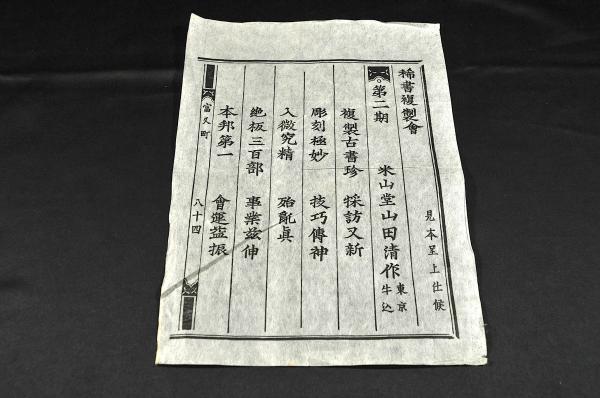 稀書複製會　見本呈上仕候
第二期　米山堂山田清作　東京牛込
複製古書珍　採訪又新
彫刻極妙　技巧傳神
入微究精　殆亂眞
絶板三百部　事業玆伸
本邦第一　會運益振
富久町　八十四